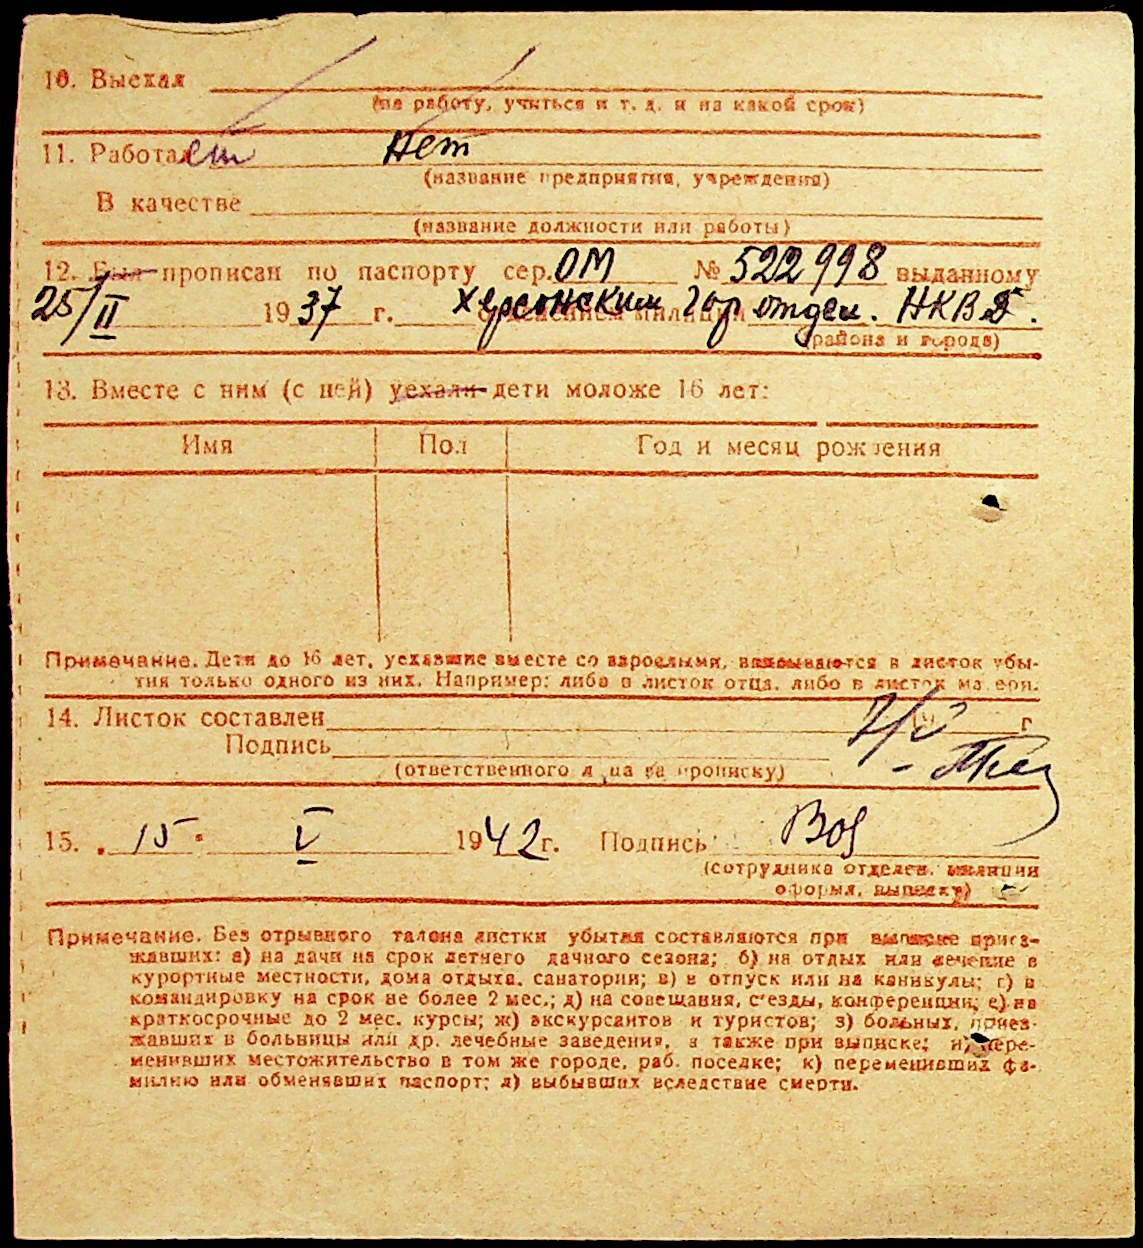 10. Выехал
(на работу, учиться и т. д. и на какой срок)
11. Работает нет
(название предприятия, учреждения)
В качестве
(название должности или работы)
12. Был прописан по паспорту сер. ОМ № 522998 выданному
25/II 1937 г. Херсонским Гор отдел. НКВД.
(района и города)
13. Вместе с ним (с ней) уехали дети моложе 16 лет:
Имя Пол Год и месяц рождения
Примечание. Дети до 16 лет, уехавшие вместе со взрослыми, вписываются в листок убы-
тия только одного из них. Например: либо в листок отца, либо в листок матери.
14. Листок составлен г
Подпись
(ответственного лица за прописку)
15. 15 V 1942 г. Подпись
(сотрудника отделен. милиции
оформл. выписку)
Примечание. Без отрывного талона листки убытия составляются при выписке приез-
жавших: а) на дачи на срок летнего дачного сезона; б) на отдых или лечение в
курортные местности, дома отдыха, санатории; в) в отпуск или на каникулы; г) в
командировку на срок не более 2 мес.; д) на совещания, с'езды, конференции; е) на
краткосрочные до 2 мес. курсы; ж) экскурсантов и туристов; з) больных, приез-
жавших в больницы или др. лечебные заведения, а также при выписке; и) пере-
менивших местожительство в том же городе, раб. поселке; к) переменивших фа-
милию или обменявших паспорт; л) выбывших вследствие смерти.